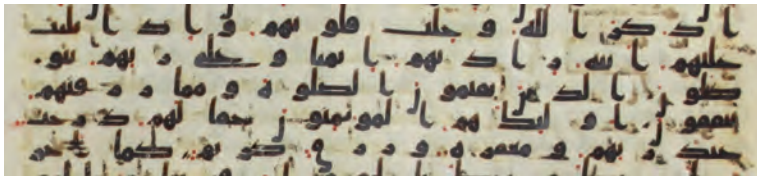 ا ذكر الله وجلت قلوبهم واذا تليت
عليهم ايته زادتهم ايمنا وعلى ربهم يتو
كلون الذين يقيمون الصلوة ومما رزقنهم
ينفقون اولئك هم المومنون حقا لهم درجت
عند ربهم ومغفرة ورزق كريم كما اخر